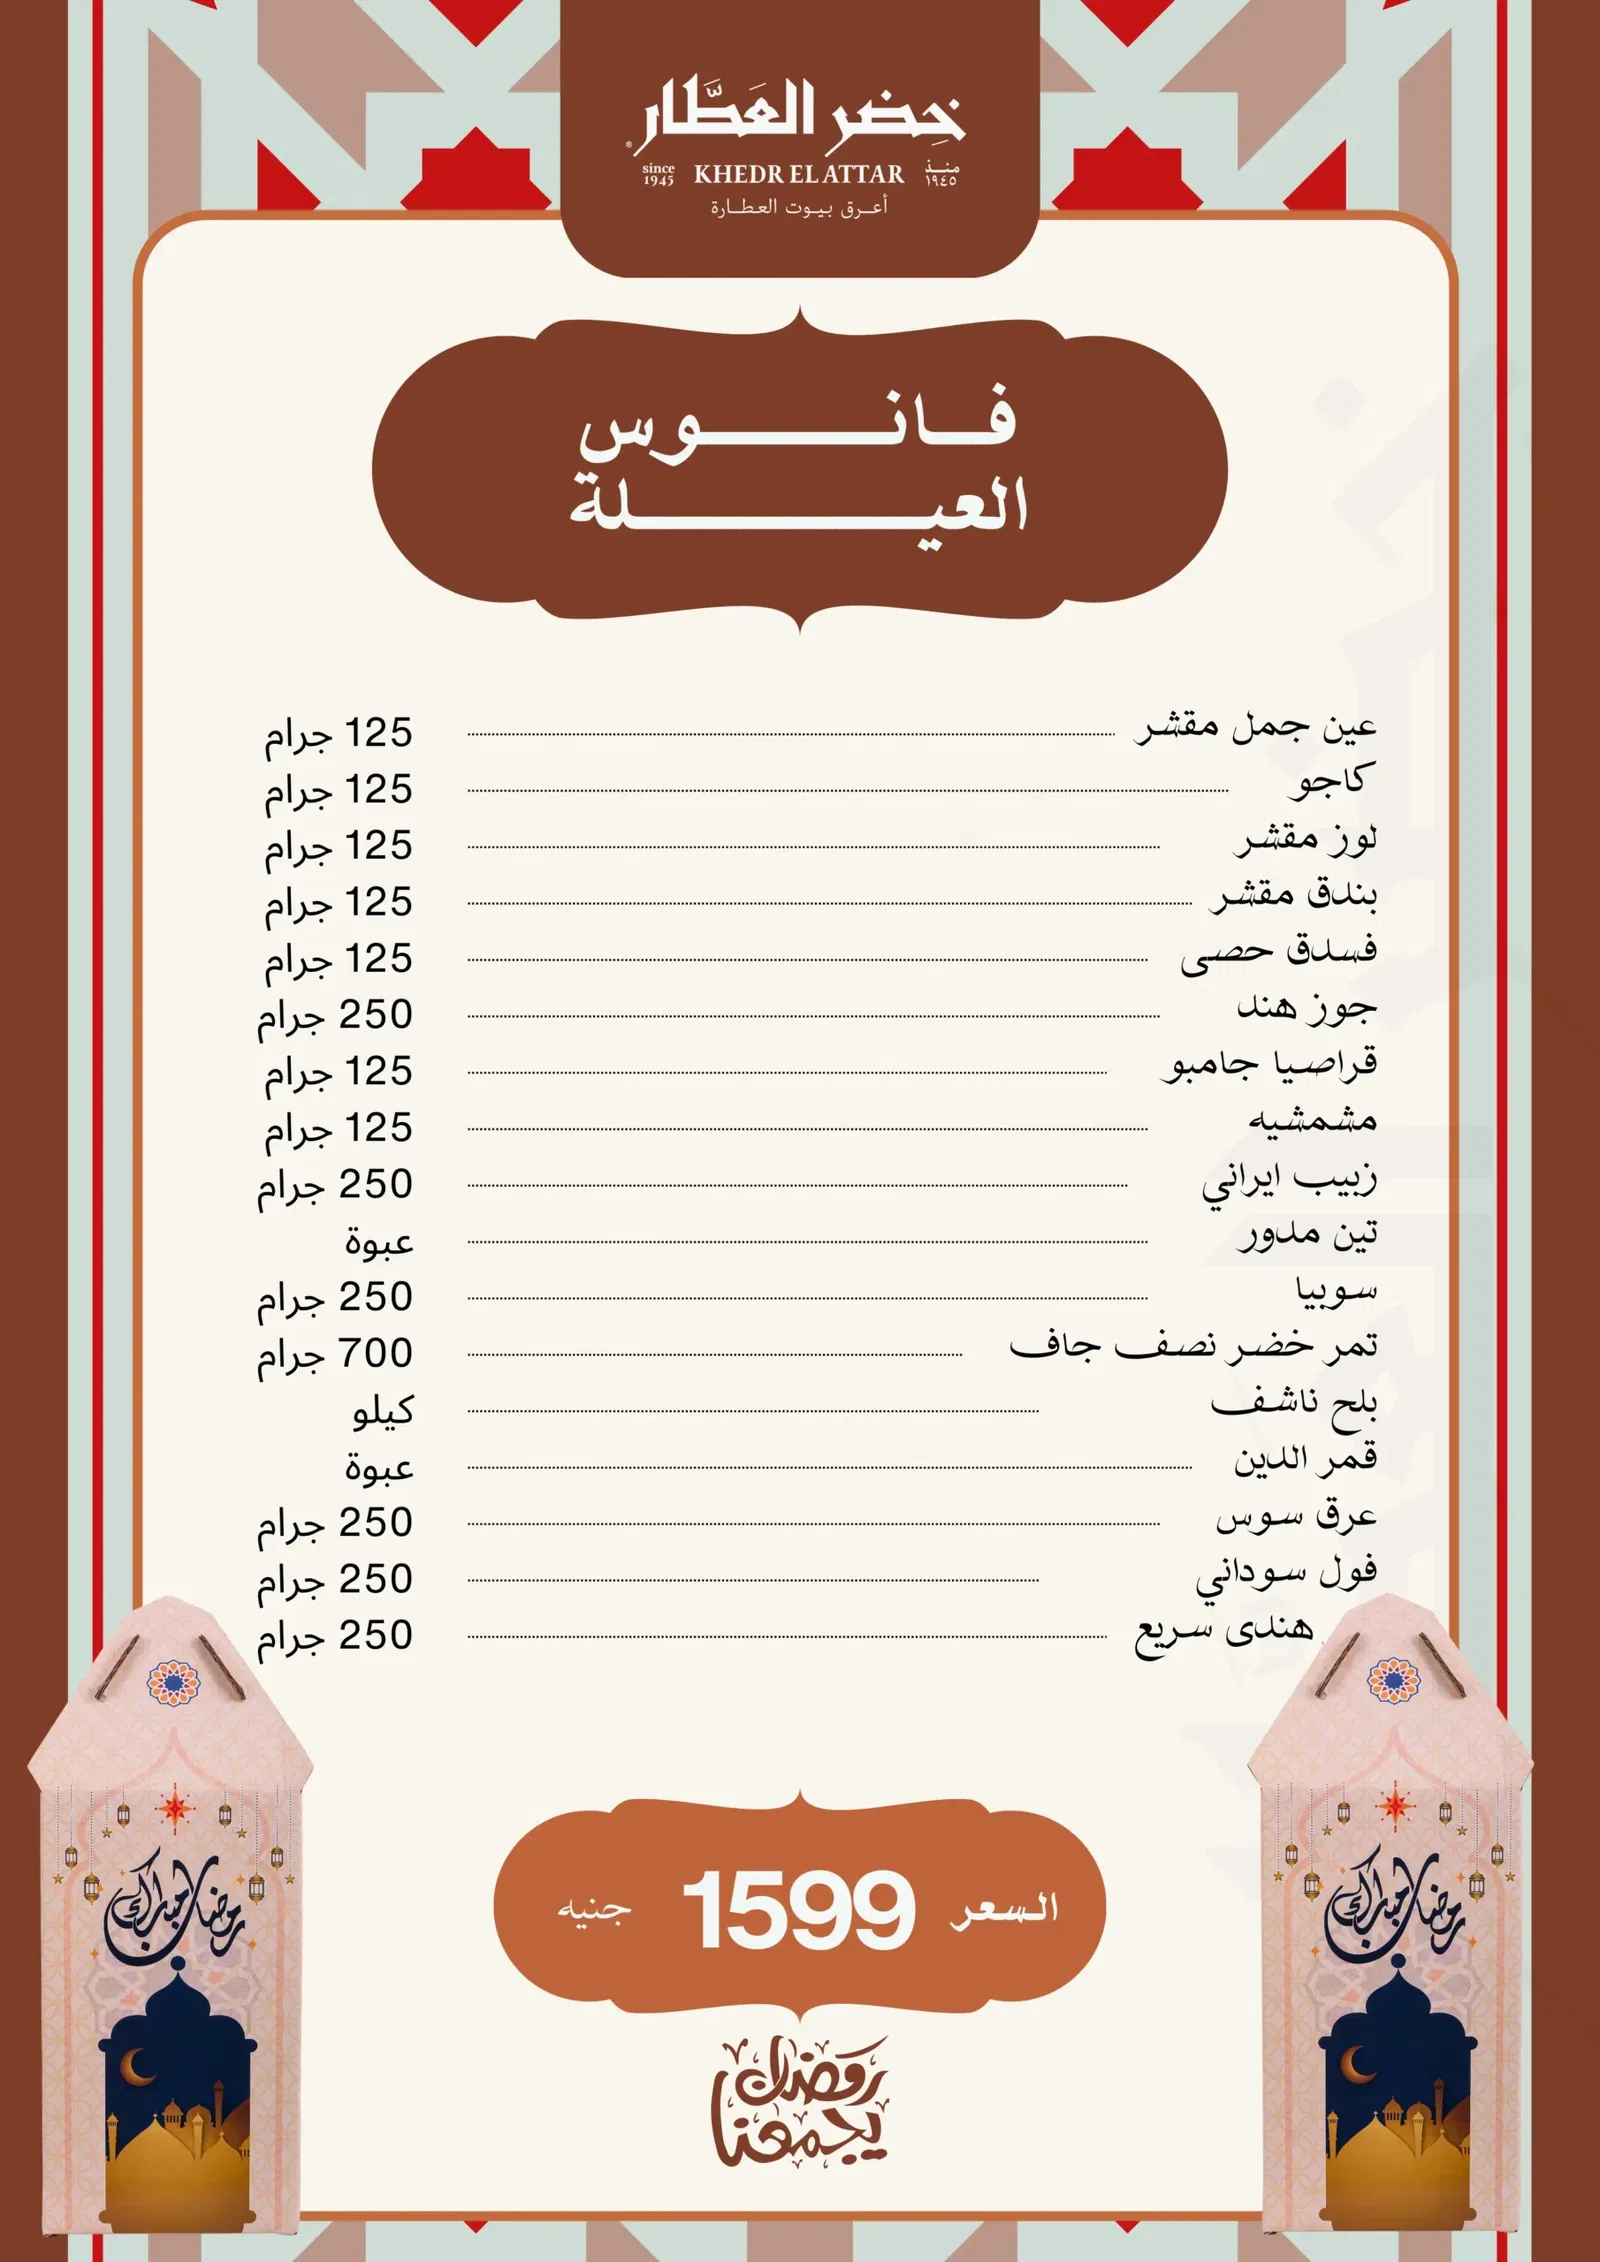 خضر العطار
®
since 1945 KHEDR EL ATTAR منذ ١٩٤٥
أعرق بيوت العطارة
فانوس
العيلة
عين جمل مقشر 125 جرام
كاجو 125 جرام
لوز مقشر 125 جرام
بندق مقشر 125 جرام
فسدق حصى 125 جرام
جوز هند 250 جرام
قراصيا جامبو 125 جرام
مشمشيه 125 جرام
زبيب ايراني 250 جرام
تين مدور عبوة
سوبيا 250 جرام
تمر خضر نصف جاف 700 جرام
بلح ناشف كيلو
قمر الدين عبوة
عرق سوس 250 جرام
فول سوداني 250 جرام
هندى سريع 250 جرام
السعر 1599 جنيه
رمضان مبارك
رمضان مبارك
رمضان
يجمعنا